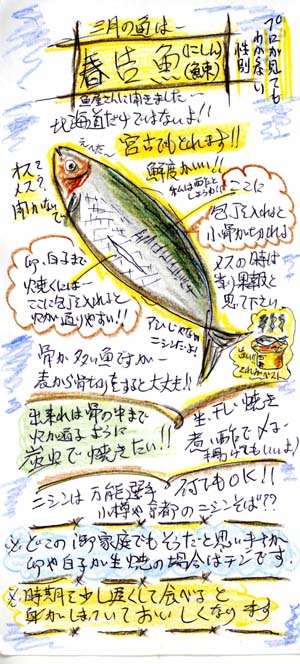 三月の魚は
春告魚(にしん)(鯡)
プロが見ても
わからない
性別
魚屋さんに聞きました
北海道だけではないよ!!
宮古でもとれます!!
鮮度がいい!!
オス?
メス?
聞かないで
ここに
包丁を入れると
小骨が切れます
メスの時は
幸り果報と
思って下さい
卵、白子まで
焼くには
ここに包丁を入れると
火が通りやすい!!
アジじゃない
ニシンだよ!
骨が多い魚ですが
表から骨切りをすると大丈夫!!
出来れば骨の中まで
火が通るように
炭火で焼きたい!!
生、干し、焼き
煮、酢で〆
何でもOK!!
ニシンは万能選手
小樽や京都のニシンそば??
※どこの御家庭でもそうだと思いますが
卵や白子が生焼の場合はチンです
※時期を少し遅くして食べると
身がしまっていておいしくなります